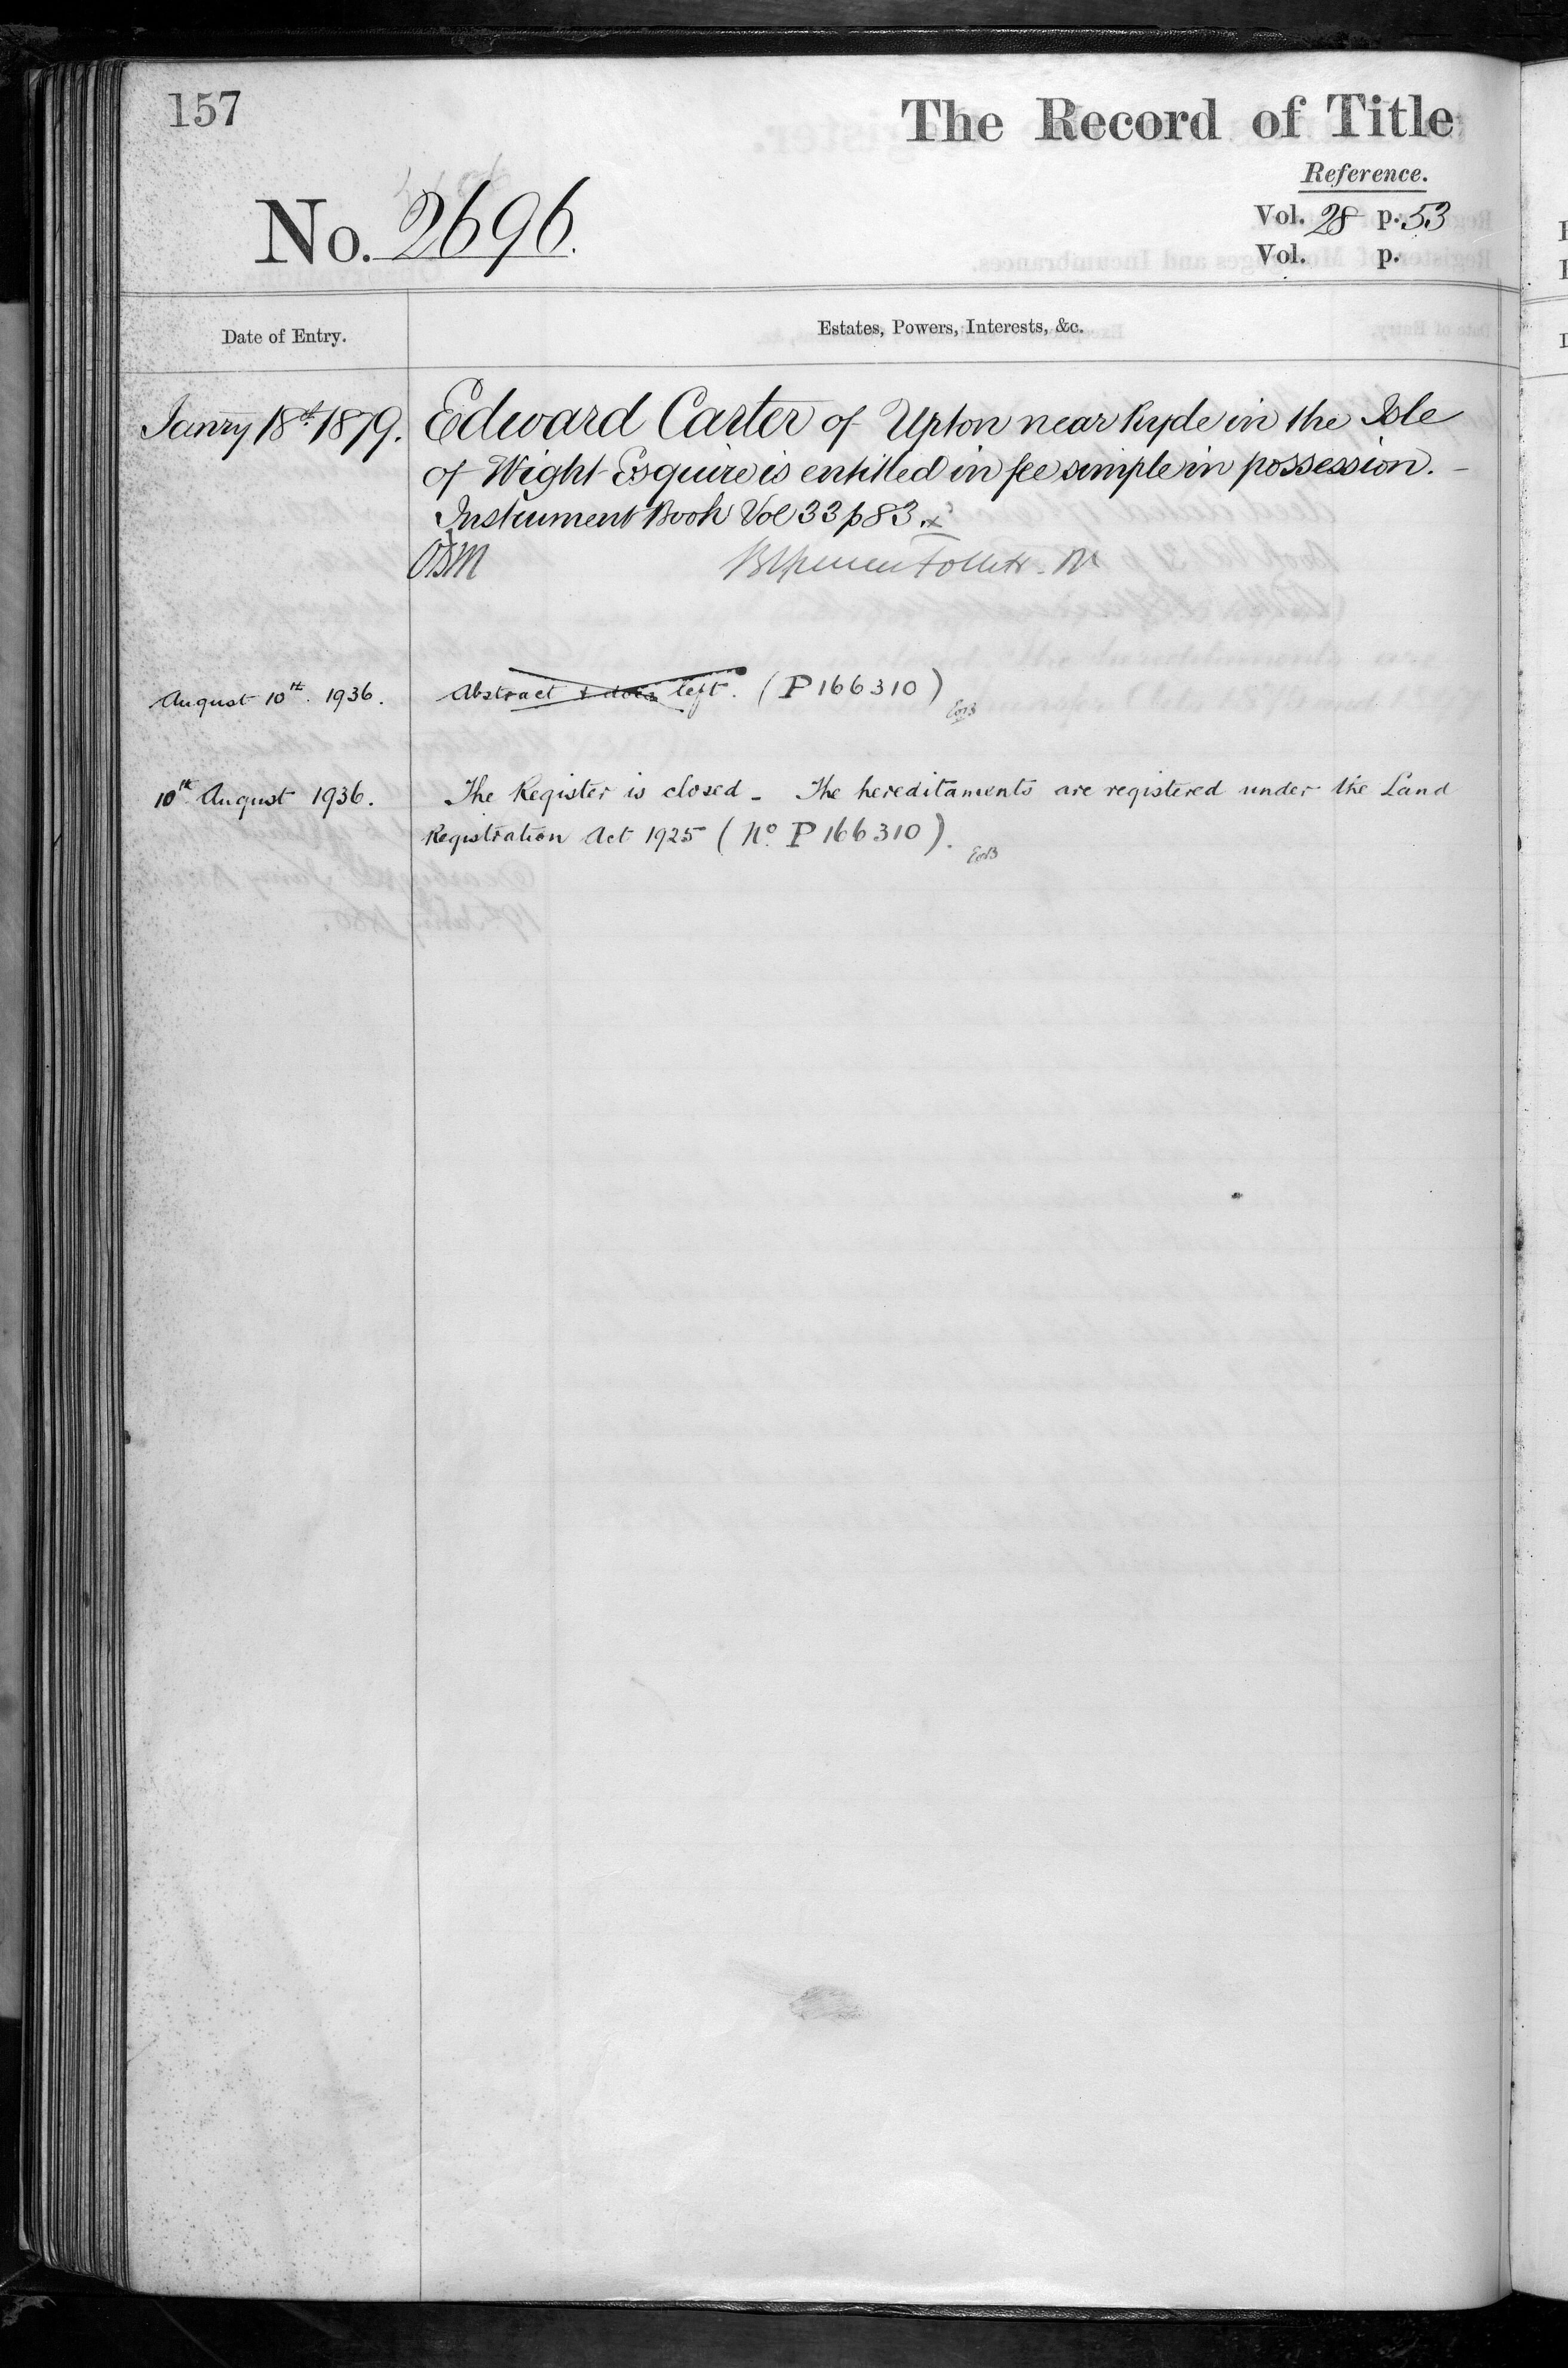 157
The Record of Title
Reference.
No. 2696.
Vol. 28 p. 53
Vol. p.
Date of Entry.
Estates, Powers, Interests, &c.
Janry 18th 1879.
Edward Carter of Upton near Ryde in the Isle
of Wight Esquire is entitled in fee simple in possession. –
Instrument Book Vol 33 p 83. x
Follett
August 10th. 1936.
Abstract & docs left. (P166310)
EoB
10th August 1936.
The Register is closed – The hereditaments are registered under the Land
Registration Act 1925 (No. P166310).
EoB